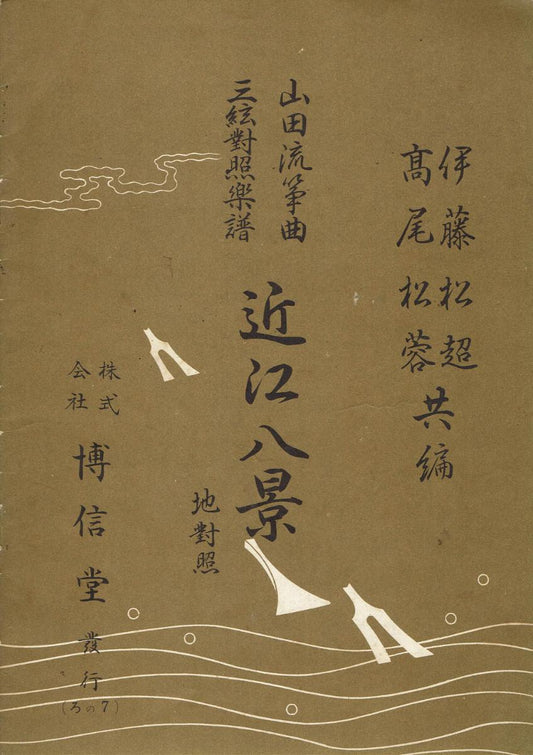 伊藤松超
髙尾松蓉
共編
山田流箏曲
三絃對照樂譜
近江八景
地對照
株式
会社
博信堂
發行
(ろの7)